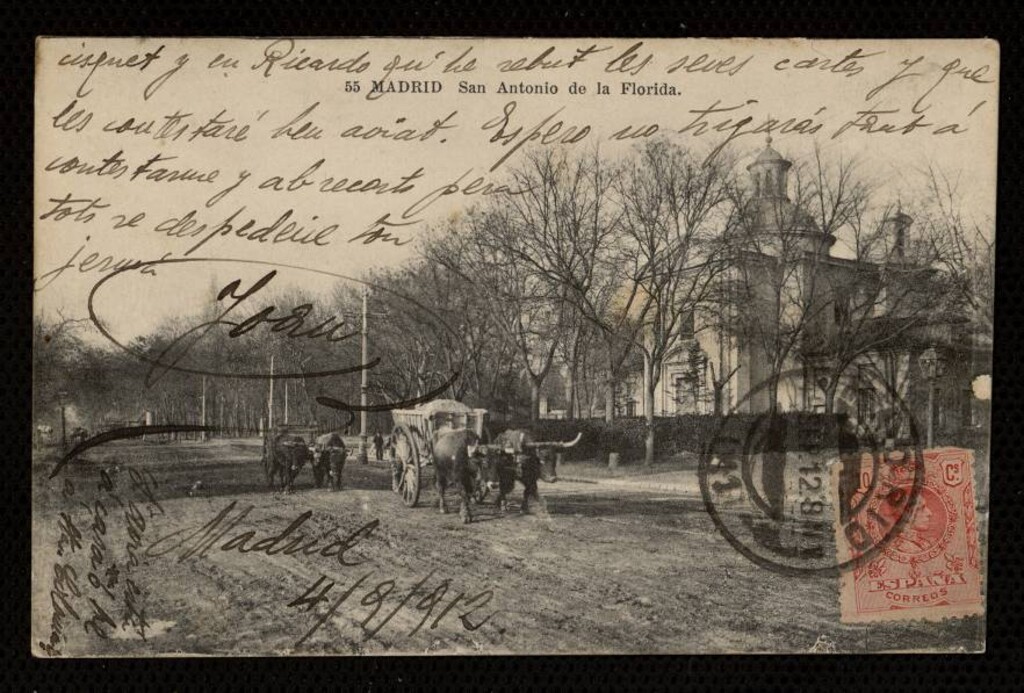 cisquet y en Ricardo qu'he rebut les seves cartes y que
55 MADRID San Antonio de la Florida.
les contestaré ben aviat. Espero no trigarás tant á
contestarme y ab recorts pera
tots se despedeix ton
jermá
Joan
Madrid
4/8/912
MADRID
12.8
ESPAÑA
CORREOS
Cs